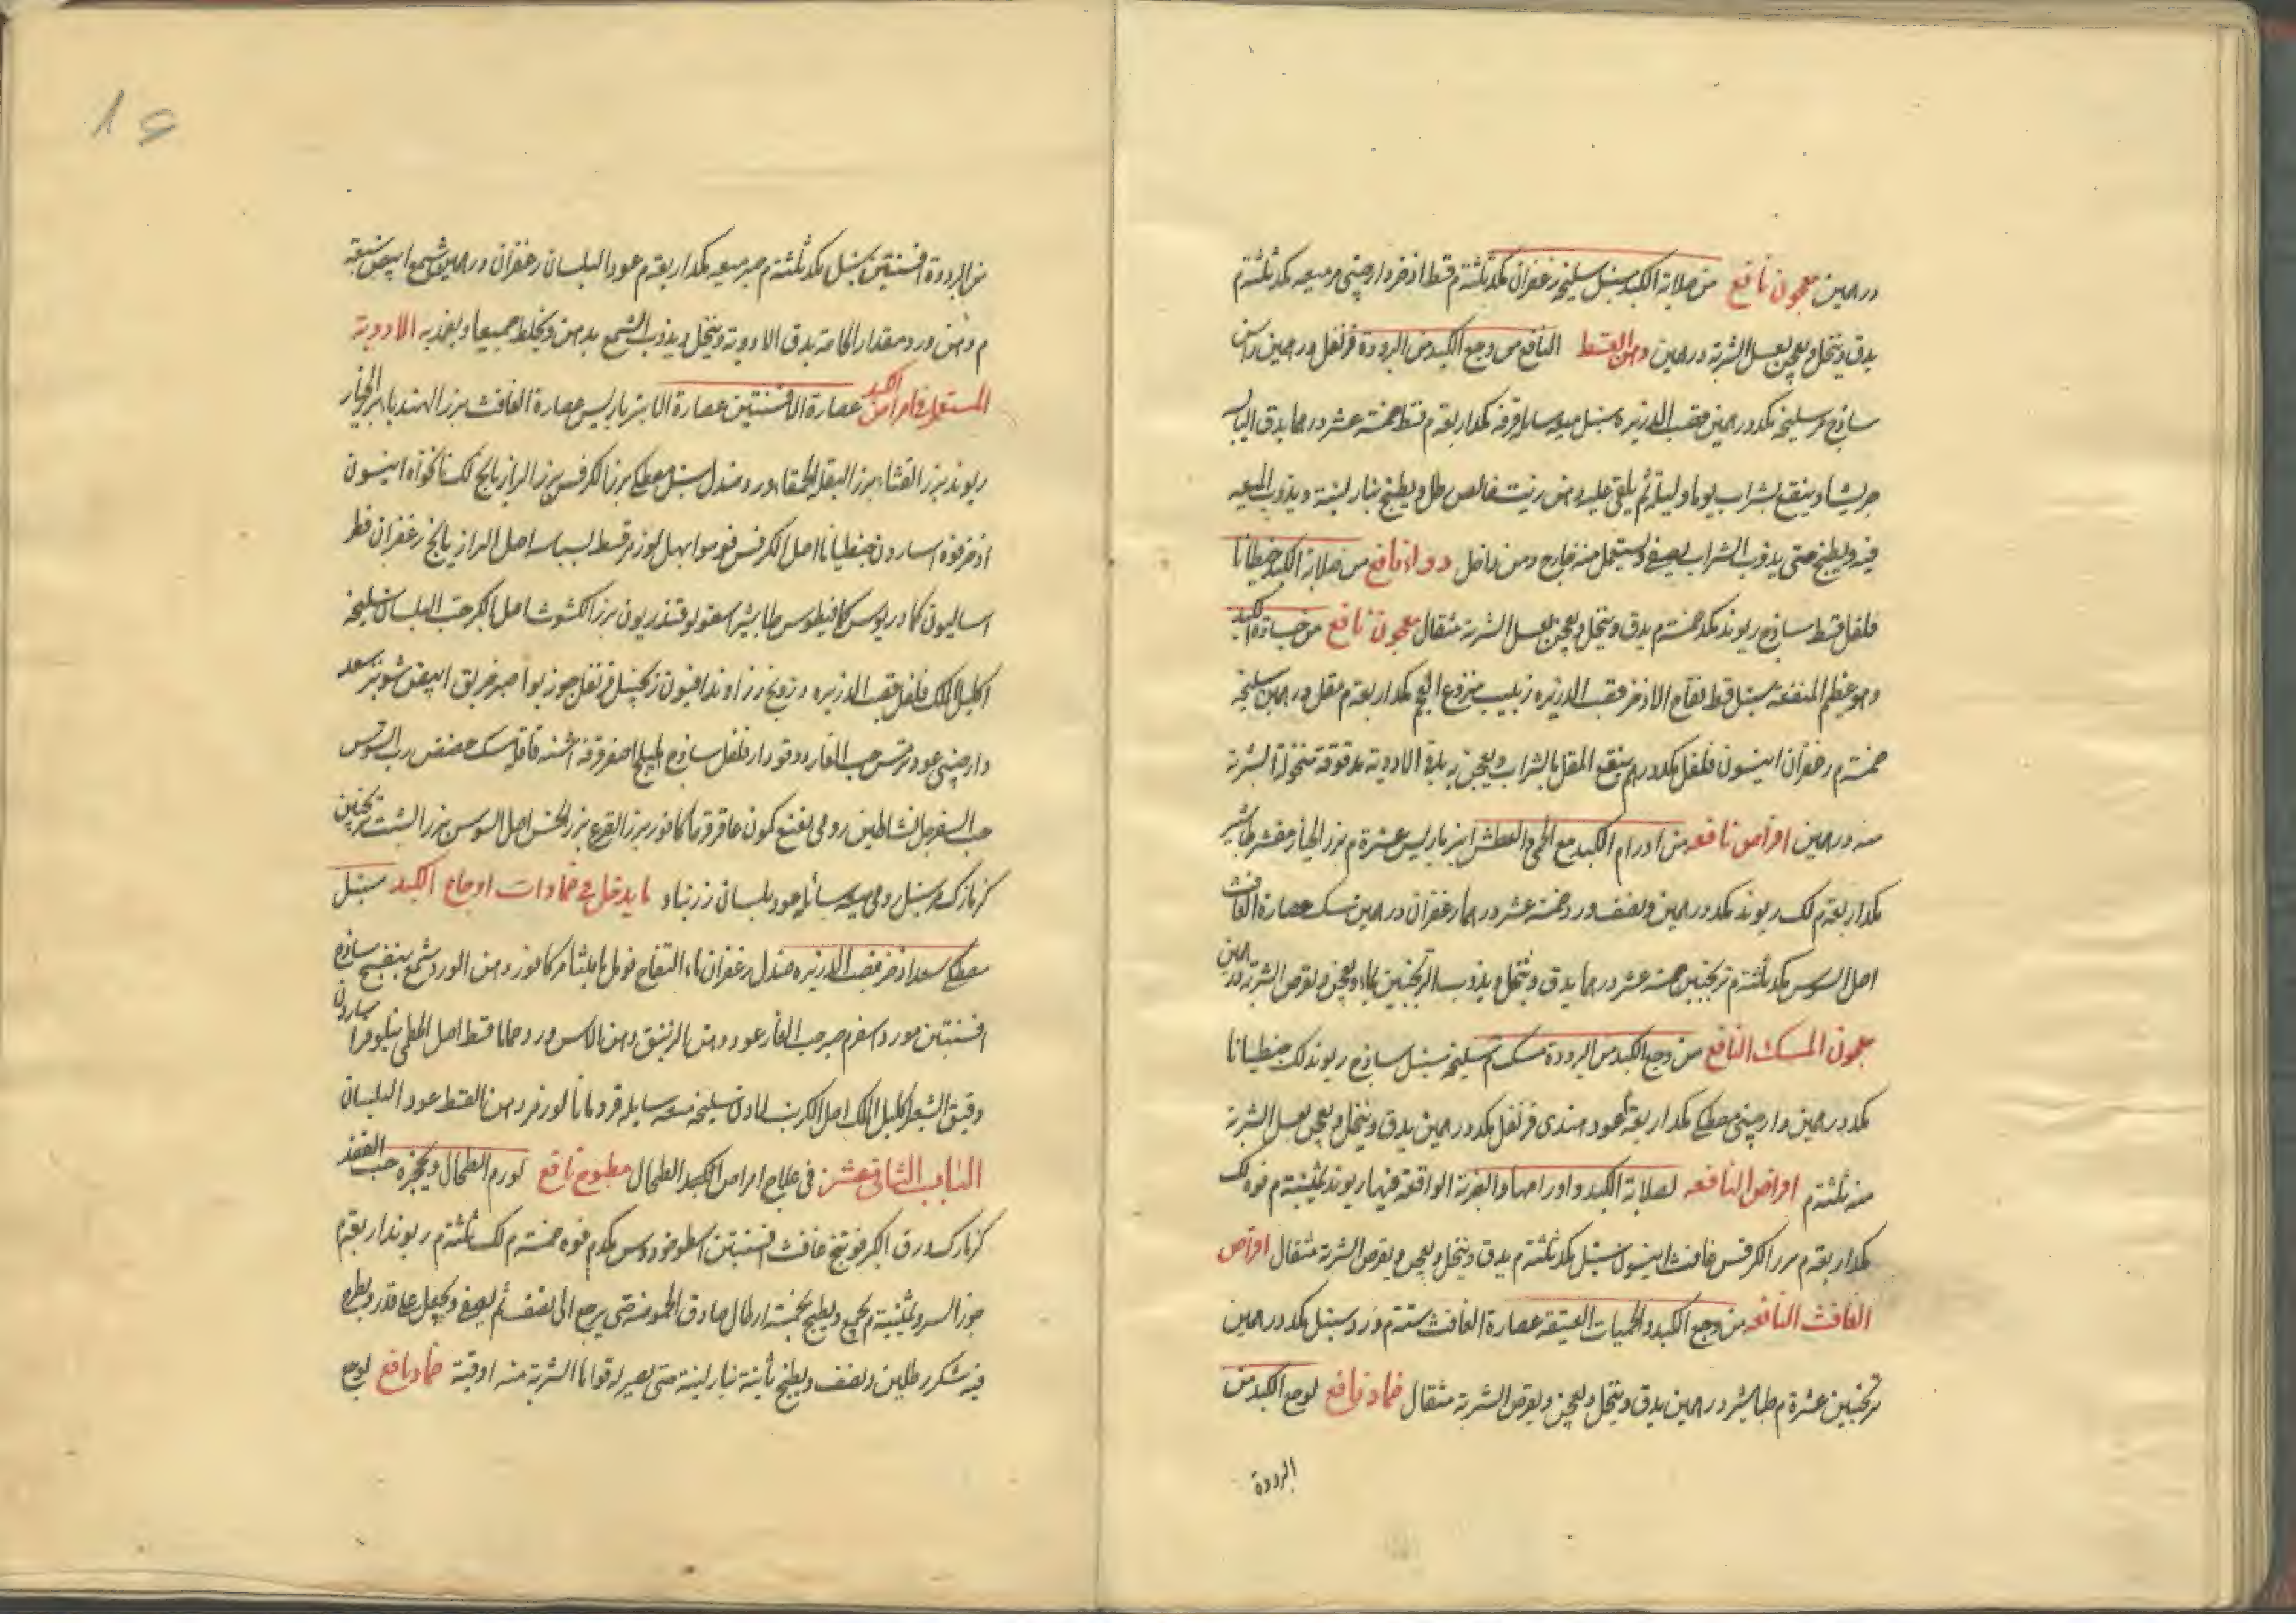 درهمين معجون نافع من صلابة الكبد سنبل سليخه زعفران مكد ثلثة م قسط اذخر دارچينى مر ميعه مكد ثلثة م
يدق وينخل ويعجن بعسل الشربة درهمين دهن القسط النافع من وجع الكبد من البرودة قرنفل درهمين راسن
ساذج مر سليخه مكد درهمين قصب الذريره سنبل ميعه سايله قرفه مكد اربعة م قسط خمسة عشر درهما يدق اليابس
جريشا وينقع بشراب يوما وليلة ثم يلقى عليه دهن زيت خالص رطل ويطبخ بنار لينة ويذوب الميعه
فيه ويطبخ حتى يذوب الشراب يصفى ويستعمل من خارج ومن داخل دواء نافع من صلابة الكبد جنطيانا
فلفل قسط ساذج ريوند مكد خمسة م يدق وينخل ويعجن بعسل الشربة مثقال معجون نافع من جساوة الكبد
وهو عظيم المنفعه سنبل قسط فقاح الاذخر قصب الذريره زبيب منزوع العجم مكد اربعة م مقل درهمين سليخه
خمسة م زعفران انيسون فلفل مكد درهم ينقع المقل بالشراب ويعجن به بقية الادوية مدقوقة منخولة الشربة
منه درهمين اقراص نافعه من اورام الكبد مع الحمى والعطش انبرباريس عشرة م بزر الخيار مقشر طباشير
مكد اربعة م لك ريوند مكد درهمين ونصف ورد خمسة عشر درهما زعفران درهمين عصارة الغافث
اصل السوس مكد ثلثة م ترنجبين خمسة عشر درهما يدق وينخل ويذوب الترنجبين بماء ويعجن ويقرص الشربة درهمين
معجون المسك النافع من وجع الكبد من البرودة مسك م سليخه سنبل ساذج ريوند لك جنطيانا
مكد درهمين دارچينى مصطكى مكد اربعة م عود هندى قرنفل مكد درهمين يدق وينخل ويعجن بعسل الشربة
منه ثلثة م اقراص النافعه لصلابة الكبد واورامها والضربة الواقعة فيها ريوند ثمنية م فوه لك
مكد اربعة م بزر الكرفس غافث انيسون سنبل مكد ثلثة م يدق وينخل ويعجن ويقرص الشربة مثقال اقراص
الغافث النافعه من وجع الكبد والحميات العتيقه عصارة الغافث ستة م ورد سنبل مكد درهمين
ترنجبين عشرة م طباشير درهمين يدق وينخل ويعجن ويقرص الشربة مثقال ضماد نافع لوجع الكبد من
البرودة
۱۶
من البرودة افسنتين سنبل مكد ثلثة م صبر ميعه مكد اربعة م عود البلسان زعفران درهمين شمع ابيض سبعة
م دهن ورد مقدار الحاجة يدق الادوية وينخل ويذوب الشمع بدهن ويخلط جميعا ويضمد به الادوية
المستعملة فى امراض الكبد عصارة الافسنتين عصارة الانبرباريس عصارة الغافث بزر الهندبا بزر الخيار
ريوند بزر القثاء بزر البقلة الحمقاء ورد صندل سنبل مصطكى بزر الكرفس بزر الرازيانج لك نانخواه انيسون
اذخر فوه اسارون جنطيانا اصل الكرفس فو مو ابهل لوز مر قسط بسباسه اصل الرازيانج زعفران فطر
اساليون كمادريوس كمافيطوس طباشير اسقولوقندريون بزر الكشوث اصل الكبر حب البلسان سليخه
اكليل الملك فلفل قصب الذريره درونج زراوند افيون زنجبيل قرنفل جوز بوا صبر خربق ابيض شونيز سعد
دارچينى عود ترمس حب الغار دوقو دارفلفل ساذج اهليلج اصفر قرفه اشنه قاقله مسك حضض رب السوس
حب السفرجل نشا طين رومى نعنع كمون عاقرقرحا كافور بزر القرع بزر الخس اصل السوس بزر الشبت ترنجبين
كزمازك مر سنبل رومى ميعه سايله عود بلسان زرنباد ما يدخل فى ضمادات اوجاع الكبد سنبل
مصطكى سعد اذخر قصب الذريره صندل زعفران ماء التفاح فوفل ماميثا مر كافور دهن الورد شمع بنفسج ساذج
افسنتين مورد اسفرم صبر حب الغار عود دهن الزئبق دهن الاس ورد حماما قسط اصل الخطمى نيلوفر اسارون
دقيق الشعير اكليل الملك اصل الكرنب لادن سليخه ميعه سايله قردمانا لوز مر دهن القسط عود البلسان
الباب الثانى عشر فى علاج امراض الكبد الطحال مطبوخ نافع لورم الطحال وتحجره حب الفقد
كزمازك ورق الكبر فوتنج غافث افسنتين اسطوخودوس مكد م فوه خمسة م لك ثلثة م ريوند اربعة م
جوز السرو ثمنية م يجمع ويطبخ بخمسة ارطال صادق الحموضه حتى يرجع الى نصف ثم يصفى ويجعل على قدر ويطرح
فيه شكر رطلين ونصف ويطبخ ثانية بنار لينة حتى يصير له قواما الشربة منه اوقية ضماد نافع لوجع